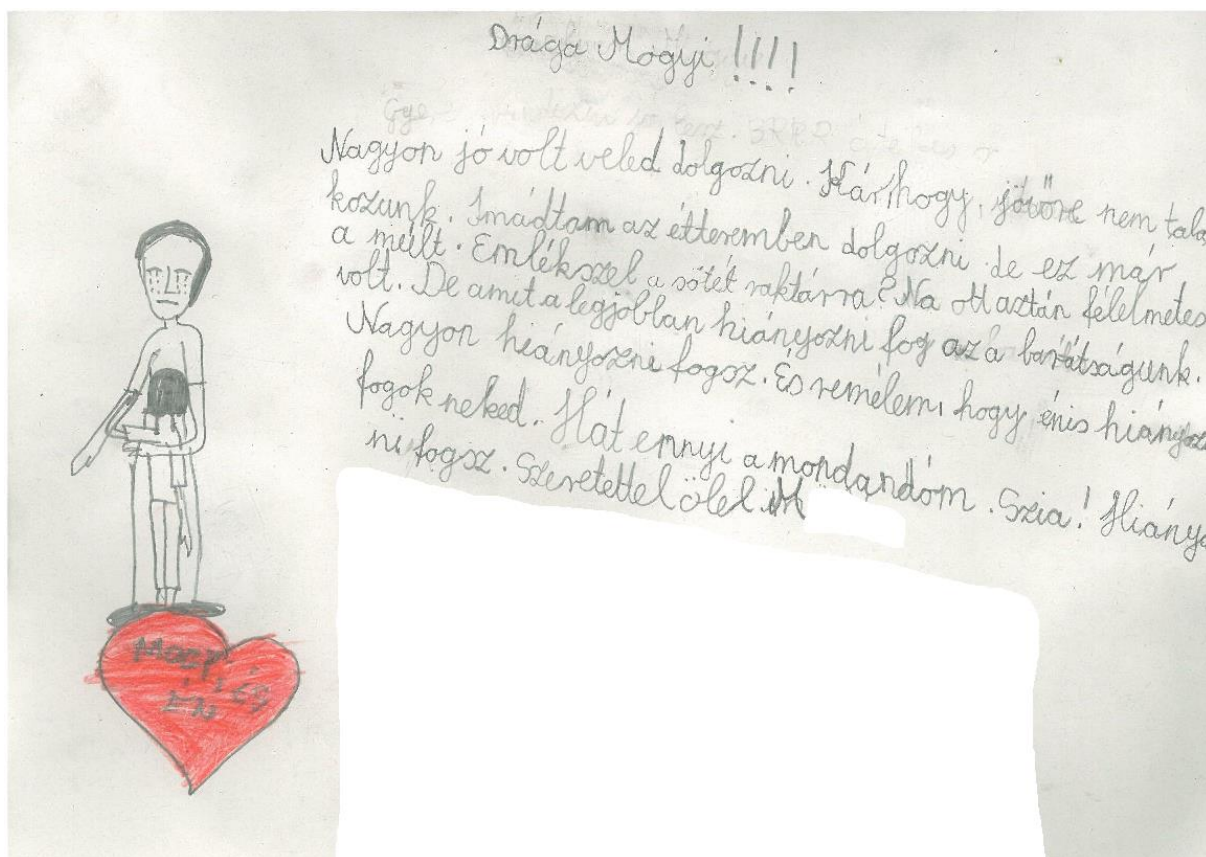 Drága Mogyi !!!!
Nagyon jó volt veled dolgozni. Kár hogy, jövőre nem talá
kozunk. Imádtam az étteremben dolgozni de ez már
a múlt. Emlékszel a sötét raktárra? Na ott aztán félelmetes
volt. De amit a legjobban hiányozni fog az a barátságunk.
Nagyon hiányozni fogsz. És remélem, hogy énis hiányoz
fogok neked. Hát ennyi a mondandóm. Szia! Hiányo
ni fogsz. Szeretettel ölel M
és
Én